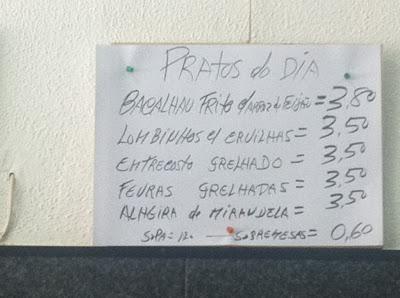 PRATOS do DIA
BACALHAU FRITO c/ARROZ de FEIJÃO = 3,80
LOMBINHOS c/ ERVILHAS = 3,50
ENTRECOSTO GRELHADO = 3,50
FEVRAS GRELHADAS = 3,50
ALHEIRA de MIRANDELA = 3,50
SOPA = SOBREMESAS = 0,60